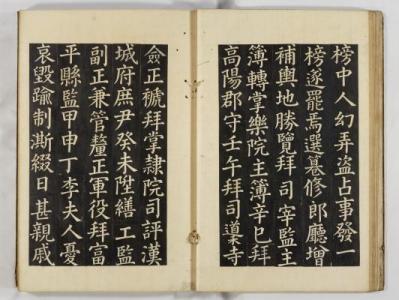 榜中人幻弄盜占事發一
榜遂罷焉選纂修郎廳增
補輿地勝覽拜司宰監主
簿轉掌樂院主簿辛巳拜
高陽郡守壬午拜司䆃寺
僉正稱拜掌隷院司評漢
城府庶尹癸未陞繕工監
副正兼管釐正軍役拜富
平縣監甲申丁李夫人憂
哀毀踰制澌綴日甚親戚